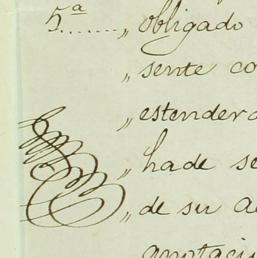 5.ª ....... „ obligado
„ sente co
„ estenderá
„ hade se
„ de su a
anotaci